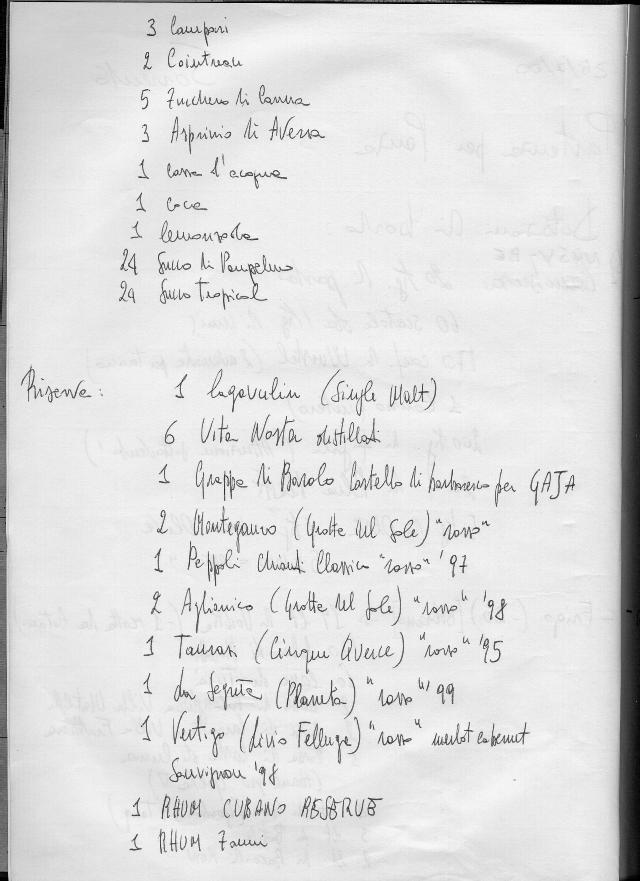 3 Campari
2 Cointreau
5 Zucchero di Canna
3 Asprinio di Aversa
1 cassa d'acqua
1 coca
1 lemonsoda
24 Succo di Pompelmo
24 Succo tropical
Riserve:
1 Lagavulin (Single Malt)
6 Vita Nosta distillati
1 Grappa di Barolo Castello di barbaresco per GAJA
2 Montegauro (Grotte del Sole) "rosso"
1 Peppoli chianti Classico "rosso" '97
2 Aglianico (Grotte del Sole) "rosso" '98
1 Taurasi (Cinque Querce) "rosso" '95
1 La Segreta (Planeta) "rosso" '99
1 Vertigo (Livio Felluga) "rosso" merlot cabernet
Sauvignon '98
1 RHUM CUBANO RESERVE
1 RHUM